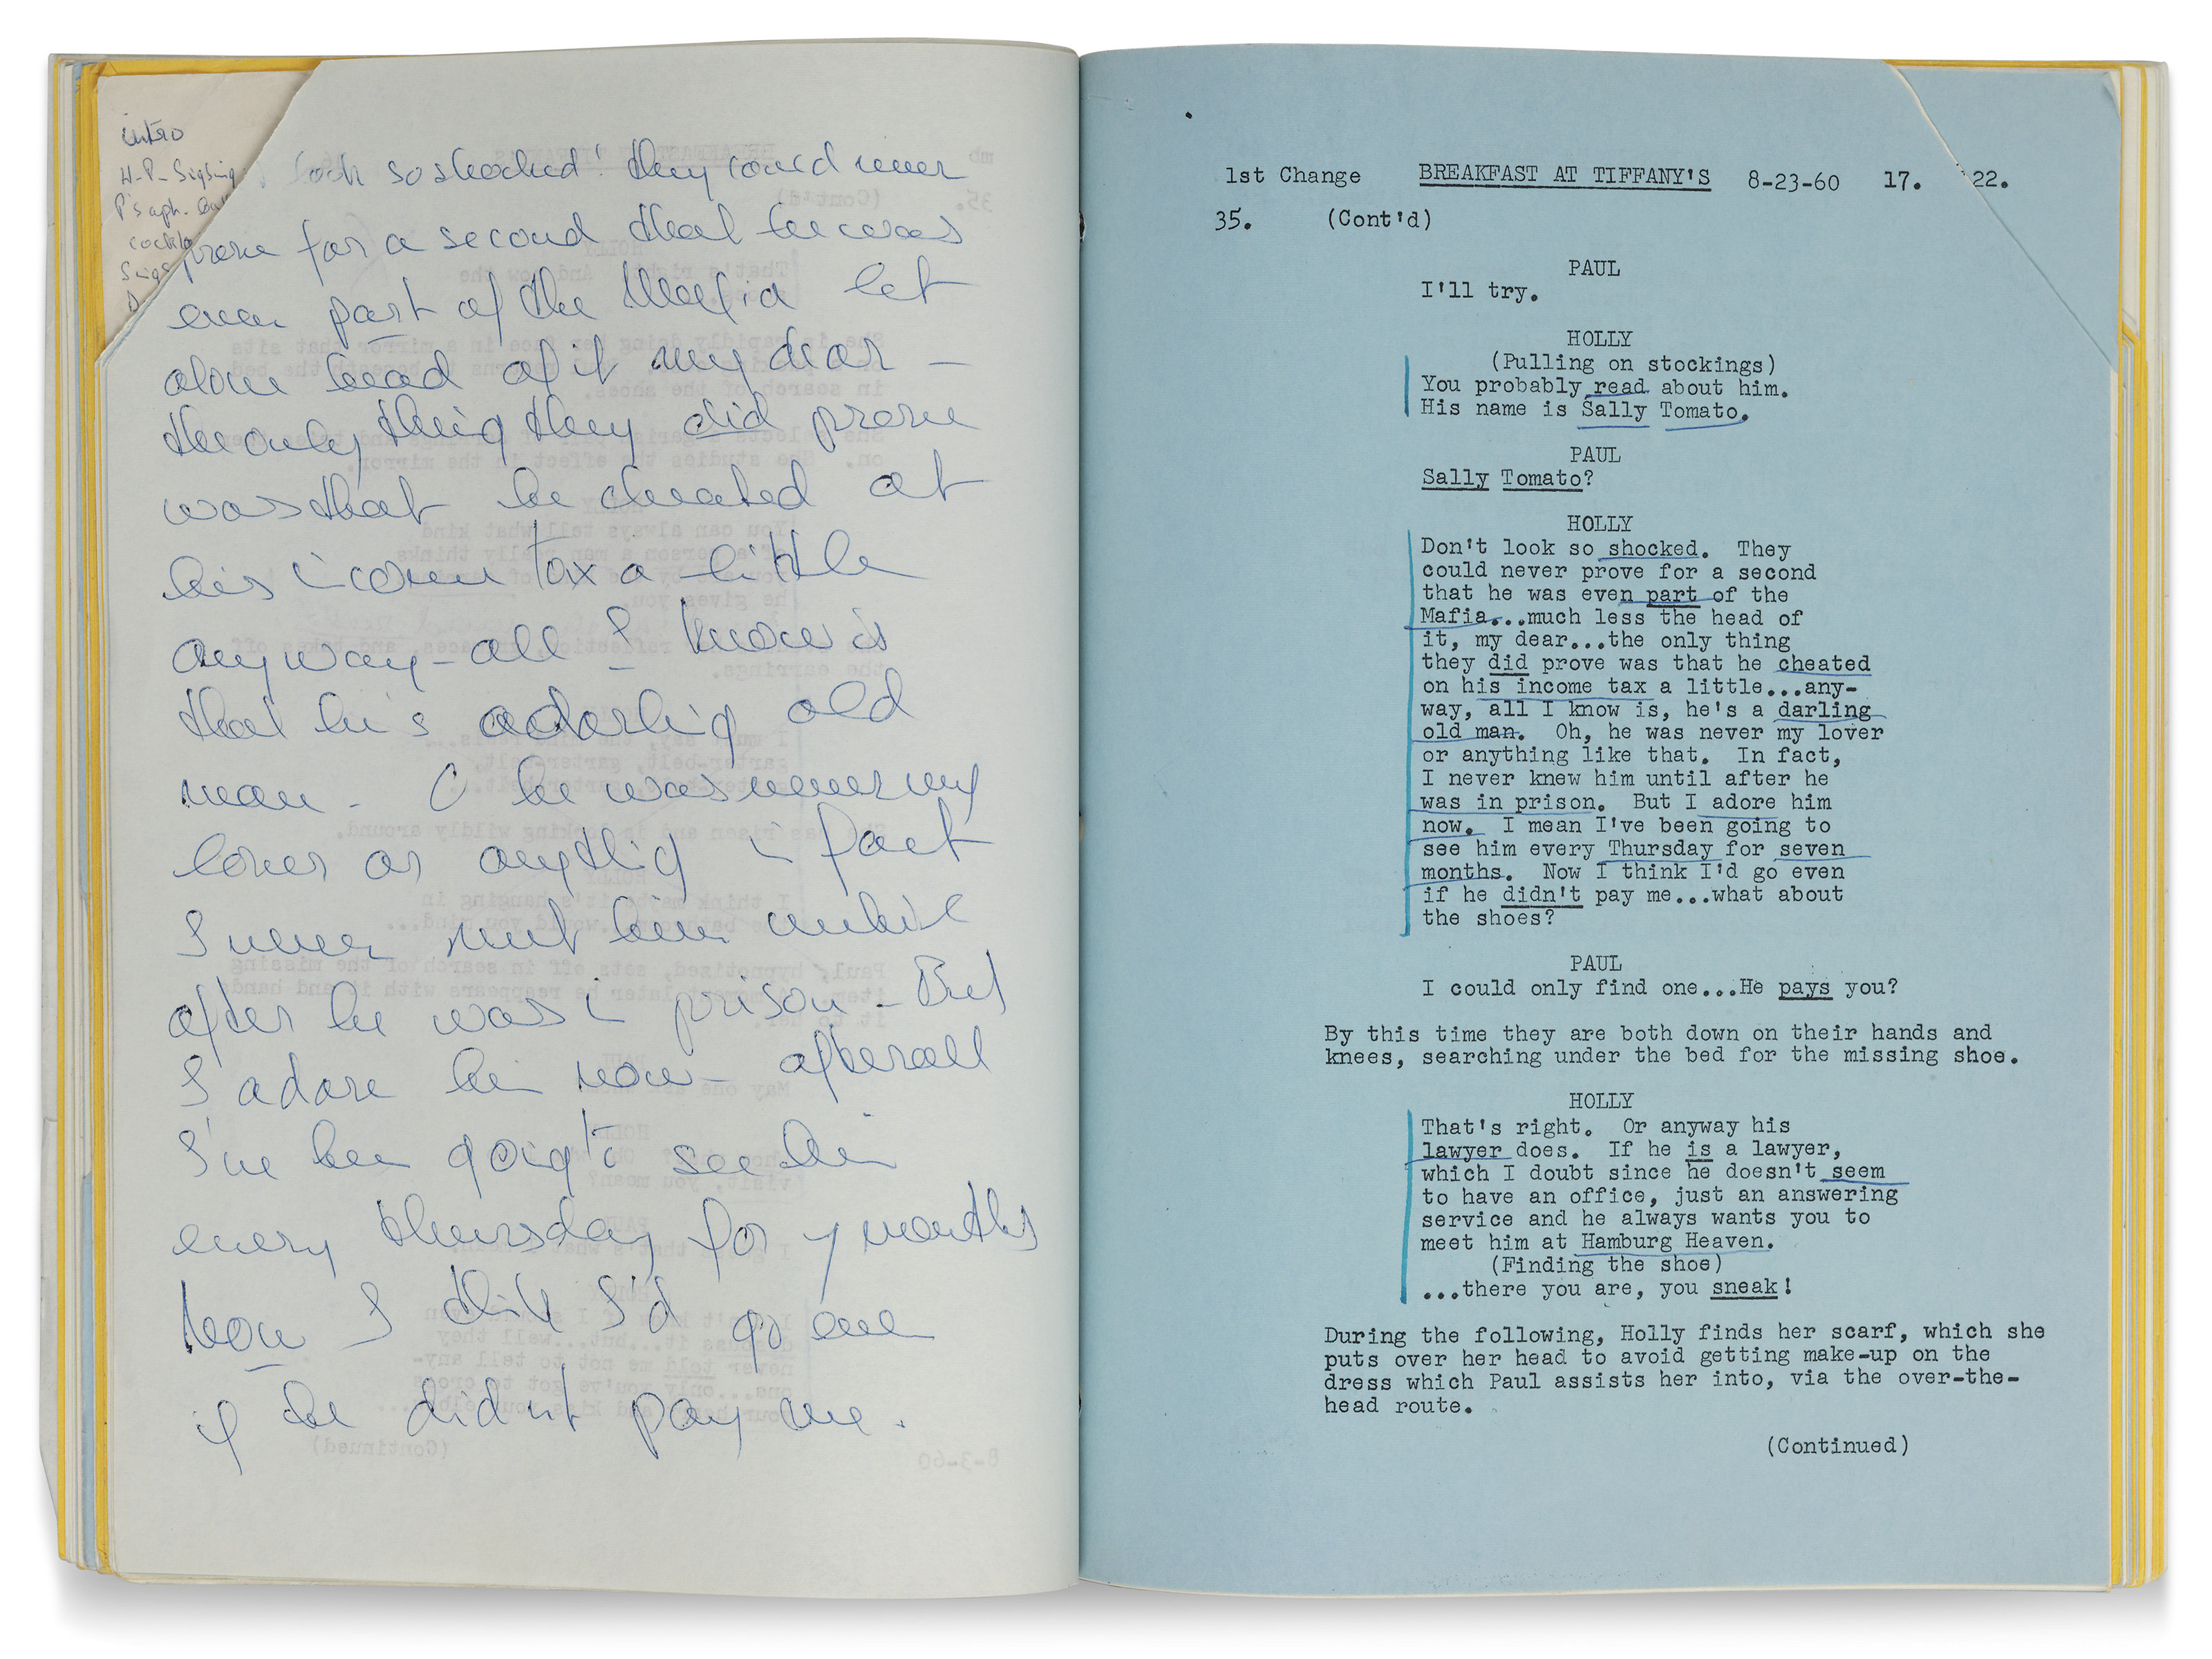 intro
H-P-
P's aph.
look so shocked! they could never
prove for a second that he was
even part of the Mafia let
alone head of it my dear –
the only thing they did prove
was that he cheated at
his income tax a little
anyway – all I know is
that he's a darling old
man. O he was never my
lover or anything in fact
I never met him until
after he was in prison – But
I adore him now – after all
I've been going to see him
every thursday for 7 months
Now I think I'd go even
if he didn't pay me.
1st Change BREAKFAST AT TIFFANY'S 8-23-60 17. 22.
35. (Cont'd)
PAUL
I'll try.
HOLLY
(Pulling on stockings)
You probably read about him.
His name is Sally Tomato.
PAUL
Sally Tomato?
HOLLY
Don't look so shocked. They
could never prove for a second
that he was even part of the
Mafia...much less the head of
it, my dear...the only thing
they did prove was that he cheated
on his income tax a little...any-
way, all I know is, he's a darling
old man. Oh, he was never my lover
or anything like that. In fact,
I never knew him until after he
was in prison. But I adore him
now. I mean I've been going to
see him every Thursday for seven
months. Now I think I'd go even
if he didn't pay me...what about
the shoes?
PAUL
I could only find one...He pays you?
By this time they are both down on their hands and
knees, searching under the bed for the missing shoe.
HOLLY
That's right. Or anyway his
lawyer does. If he is a lawyer,
which I doubt since he doesn't seem
to have an office, just an answering
service and he always wants you to
meet him at Hamburg Heaven.
(Finding the shoe)
...there you are, you sneak!
During the following, Holly finds her scarf, which she
puts over her head to avoid getting make-up on the
dress which Paul assists her into, via the over-the-
head route.
(Continued)